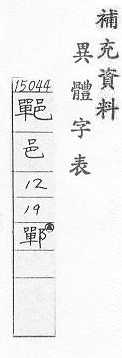 補充資料
異體字表
15044
邑
12
19
鄲